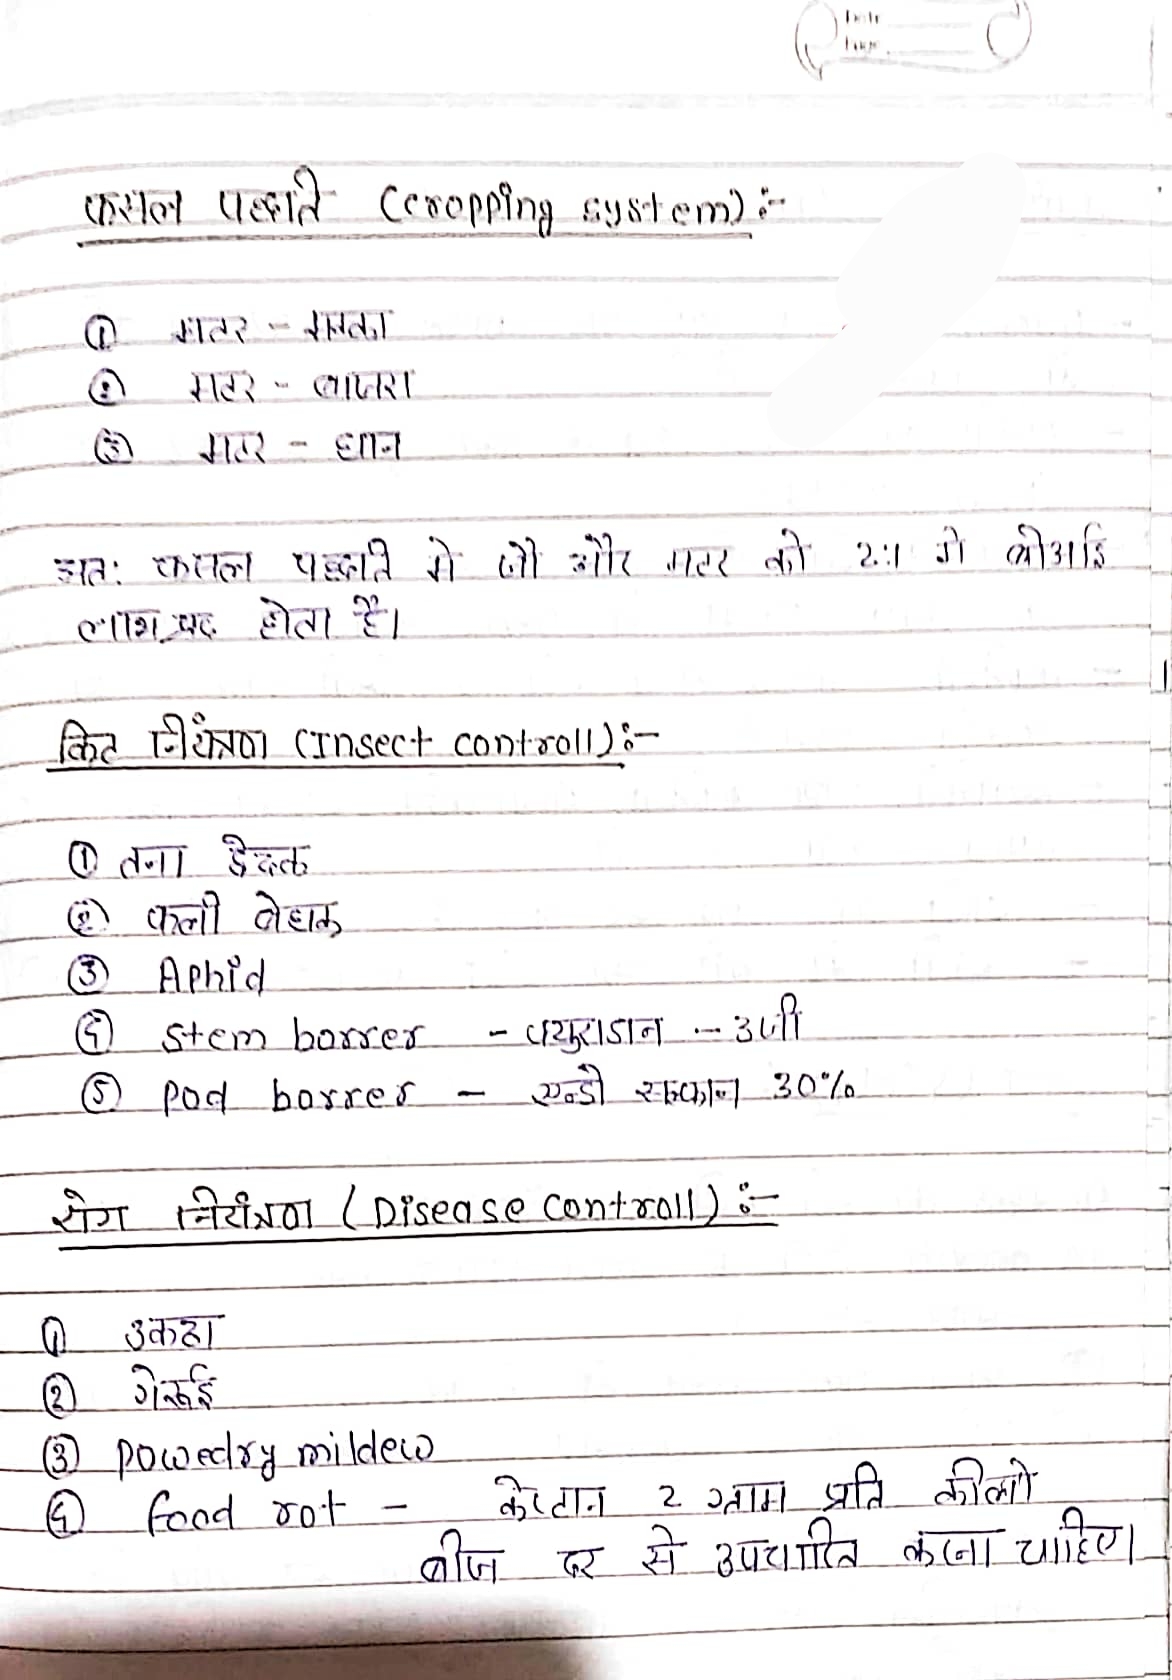 Date
Page
फसल पद्धति (cropping system):-
① मटर - मक्का
② मटर - बाजरा
③ मटर - धान
अतः फसल पद्धति मे जौ और मटर को 2:1 मे बोआई
लाभप्रद होता है।
किट नियंत्रण (Insect controll):-
① तना छेदक
② फली वेधक
③ Aphid
④ stem borrer - फ्युराडान - 3जी
⑤ pod borrer - एन्डो सल्फान 30%
रोग नियंत्रण (Disease controll):-
① उकठा
② गेरूई
③ powedry mildew
④ food rot - केप्टान 2 ग्राम प्रति कीलो
बीज दर से उपचारित करना चाहिए।